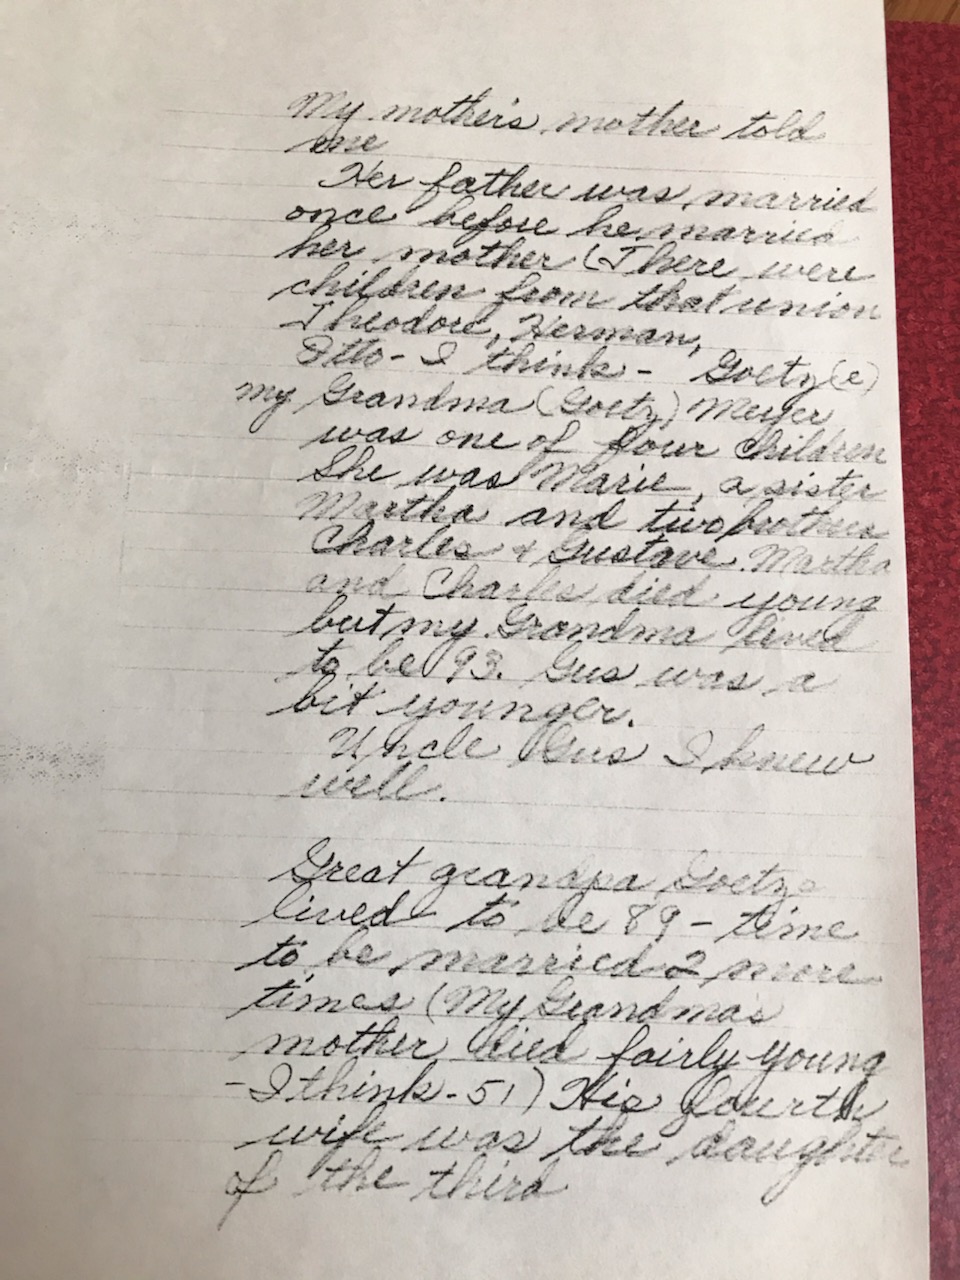 My mother's mother told
me
Her father was married
once before he married
her mother (There were
children from that union
Theodore, Herman,
Otto - I think - Goetz(e)
my Grandma (Goetz) Meyer
was one of four children
She was Marie, a sister
Martha and two brothers
Charles & Gustave. Martha
and Charles died young
but my Grandma lived
to be 93. Gus was a
bit younger.
Uncle Gus I knew
well.
Great grandpa Goetze
lived to be 89 - time
to be married 2 more
times (My Grandma's
mother died fairly young
- I think - 51) His fourth
wife was the daughter
of the third